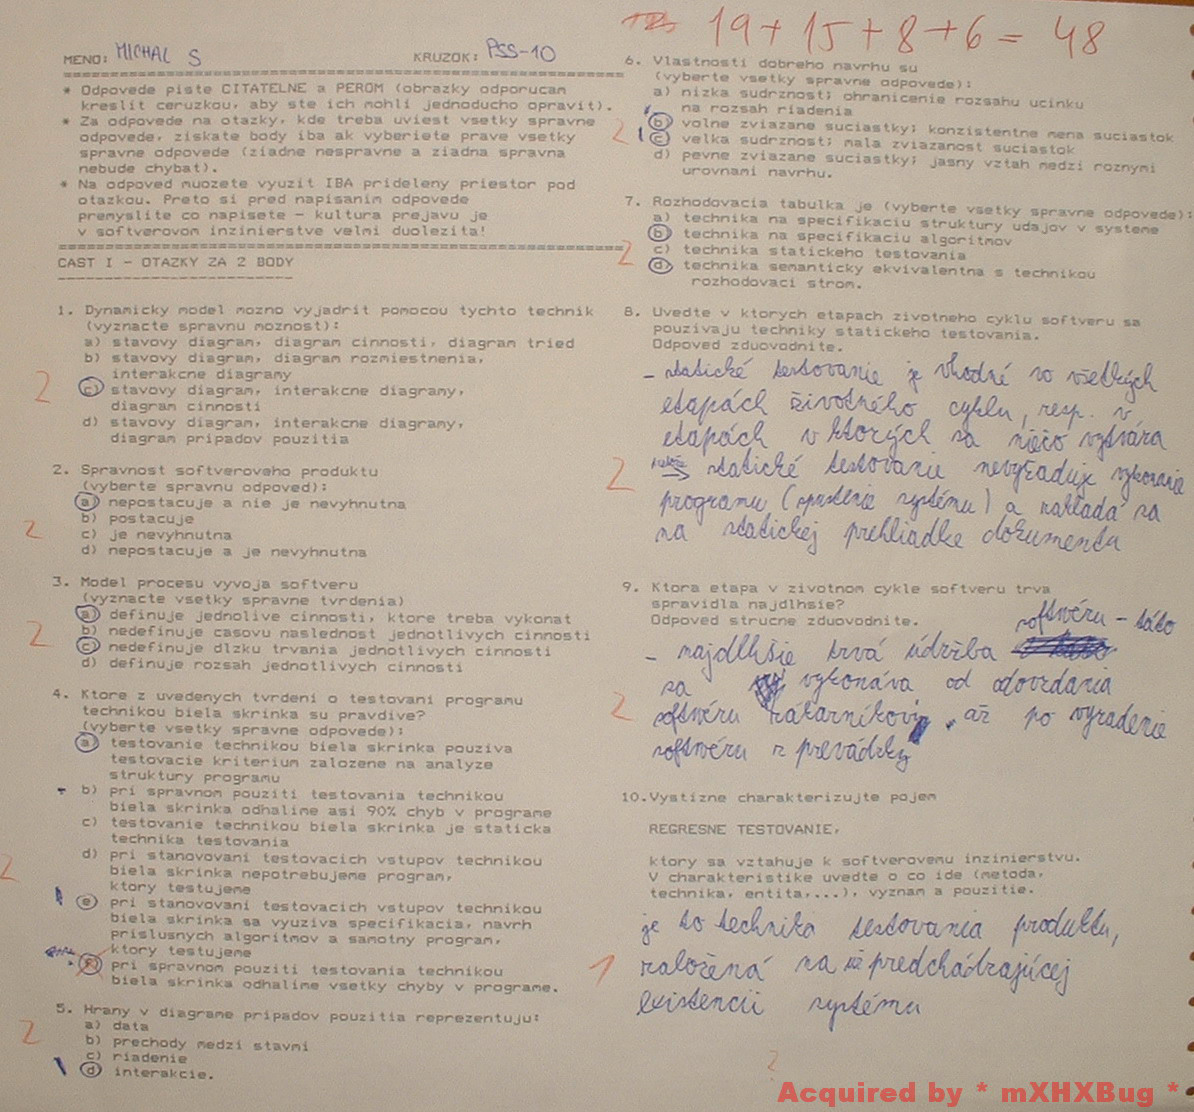 19 + 15 + 8 + 6 = 48
MENO: MICHAL S KRUZOK: PSS-10
* Odpovede piste CITATELNE a PEROM (obrazky odporucam
kreslit ceruzkou, aby ste ich mohli jednoducho opravit).
* Za odpovede na otazky, kde treba uviest vsetky spravne
odpovede, ziskate body iba ak vyberiete prave vsetky
spravne odpovede (ziadne nespravne a ziadna spravna
nebude chybat).
* Na odpoved muozete vyuzit IBA prideleny priestor pod
otazkou. Preto si pred napisanim odpovede
premyslite co napisete - kultura prejavu je
v softverovom inzinierstve velmi duolezita!
CAST I - OTAZKY ZA 2 BODY
1. Dynamicky model mozno vyjadrit pomocou tychto technik
(vyznacte spravnu moznost):
a) stavovy diagram, diagram cinnosti, diagram tried
b) stavovy diagram, diagram rozmiestnenia,
interakcne diagramy
2 c) stavovy diagram, interakcne diagramy,
diagram cinnosti
d) stavovy diagram, interakcne diagramy,
diagram pripadov pouzitia
2. Spravnost softveroveho produktu
(vyberte spravnu odpoved):
a) nepostacuje a nie je nevyhnutna
2 b) postacuje
c) je nevyhnutna
d) nepostacuje a je nevyhnutna
3. Model procesu vyvoja softveru
(vyznacte vsetky spravne tvrdenia)
a) definuje jednolive cinnosti, ktore treba vykonat
2 b) nedefinuje casovu naslednost jednotlivych cinnosti
c) nedefinuje dlzku trvania jednotlivych cinnosti
d) definuje rozsah jednotlivych cinnosti
4. Ktore z uvedenych tvrdeni o testovani programu
technikou biela skrinka su pravdive?
(vyberte vsetky spravne odpovede):
a) testovanie technikou biela skrinka pouziva
testovacie kriterium zalozene na analyze
struktury programu
b) pri spravnom pouziti testovania technikou
biela skrinka odhalime asi 90% chyb v programe
c) testovanie technikou biela skrinka je staticka
technika testovania
d) pri stanovovani testovacich vstupov technikou
2 biela skrinka nepotrebujeme program,
ktory testujeme
e) pri stanovovani testovacich vstupov technikou
biela skrinka sa vyuziva specifikacia, navrh
prislusnych algoritmov a samotny program,
ktory testujeme
f) pri spravnom pouziti testovania technikou
biela skrinka odhalime vsetky chyby v programe.
5. Hrany v diagrame pripadov pouzitia reprezentuju:
2 a) data
b) prechody medzi stavmi
c) riadenie
d) interakcie.
6. Vlastnosti dobreho navrhu su
(vyberte vsetky spravne odpovede):
a) nizka sudrznost; ohranicenie rozsahu ucinku
na rozsah riadenia
2 b) volne zviazane suciastky; konzistentne mena suciastok
c) velka sudrznost; mala zviazanost suciastok
d) pevne zviazane suciastky; jasny vztah medzi roznymi
urovnami navrhu.
7. Rozhodovacia tabulka je (vyberte vsetky spravne odpovede):
a) technika na specifikaciu struktury udajov v systeme
b) technika na specifikaciu algoritmov
2 c) technika statickeho testovania
d) technika semanticky ekvivalentna s technikou
rozhodovaci strom.
8. Uvedte v ktorych etapach zivotneho cyklu softveru sa
pouzivaju techniky statickeho testovania.
Odpoved zduovodnite.
- statické testovanie je vhodné vo všetkých
etapách životného cyklu, resp. v
etapách v ktorých sa niečo vytvára
2 statické testovanie nevyžaduje vykonanie
programu (spustenie systému) a zakladá sa
na statickej prehliadke dokumentu
9. Ktora etapa v zivotnom cykle softveru trva
spravidla najdlhsie?
Odpoved strucne zduovodnite.
- najdlhšie trvá údržba softvéru - táto
sa vykonáva od odovzdania
2 softvéru zákazníkovi, až po vyradenie
softvéru z prevádzky
10. Vystizne charakterizujte pojem
REGRESNE TESTOVANIE,
ktory sa vztahuje k softverovemu inzinierstvu.
V charakteristike uvedte o co ide (metoda,
technika, entita,...), vyznam a pouzitie.
je to technika testovania produktu,
1 založená na už predchádzajúcej
existencii systému
2
Acquired by * mXHXBug *